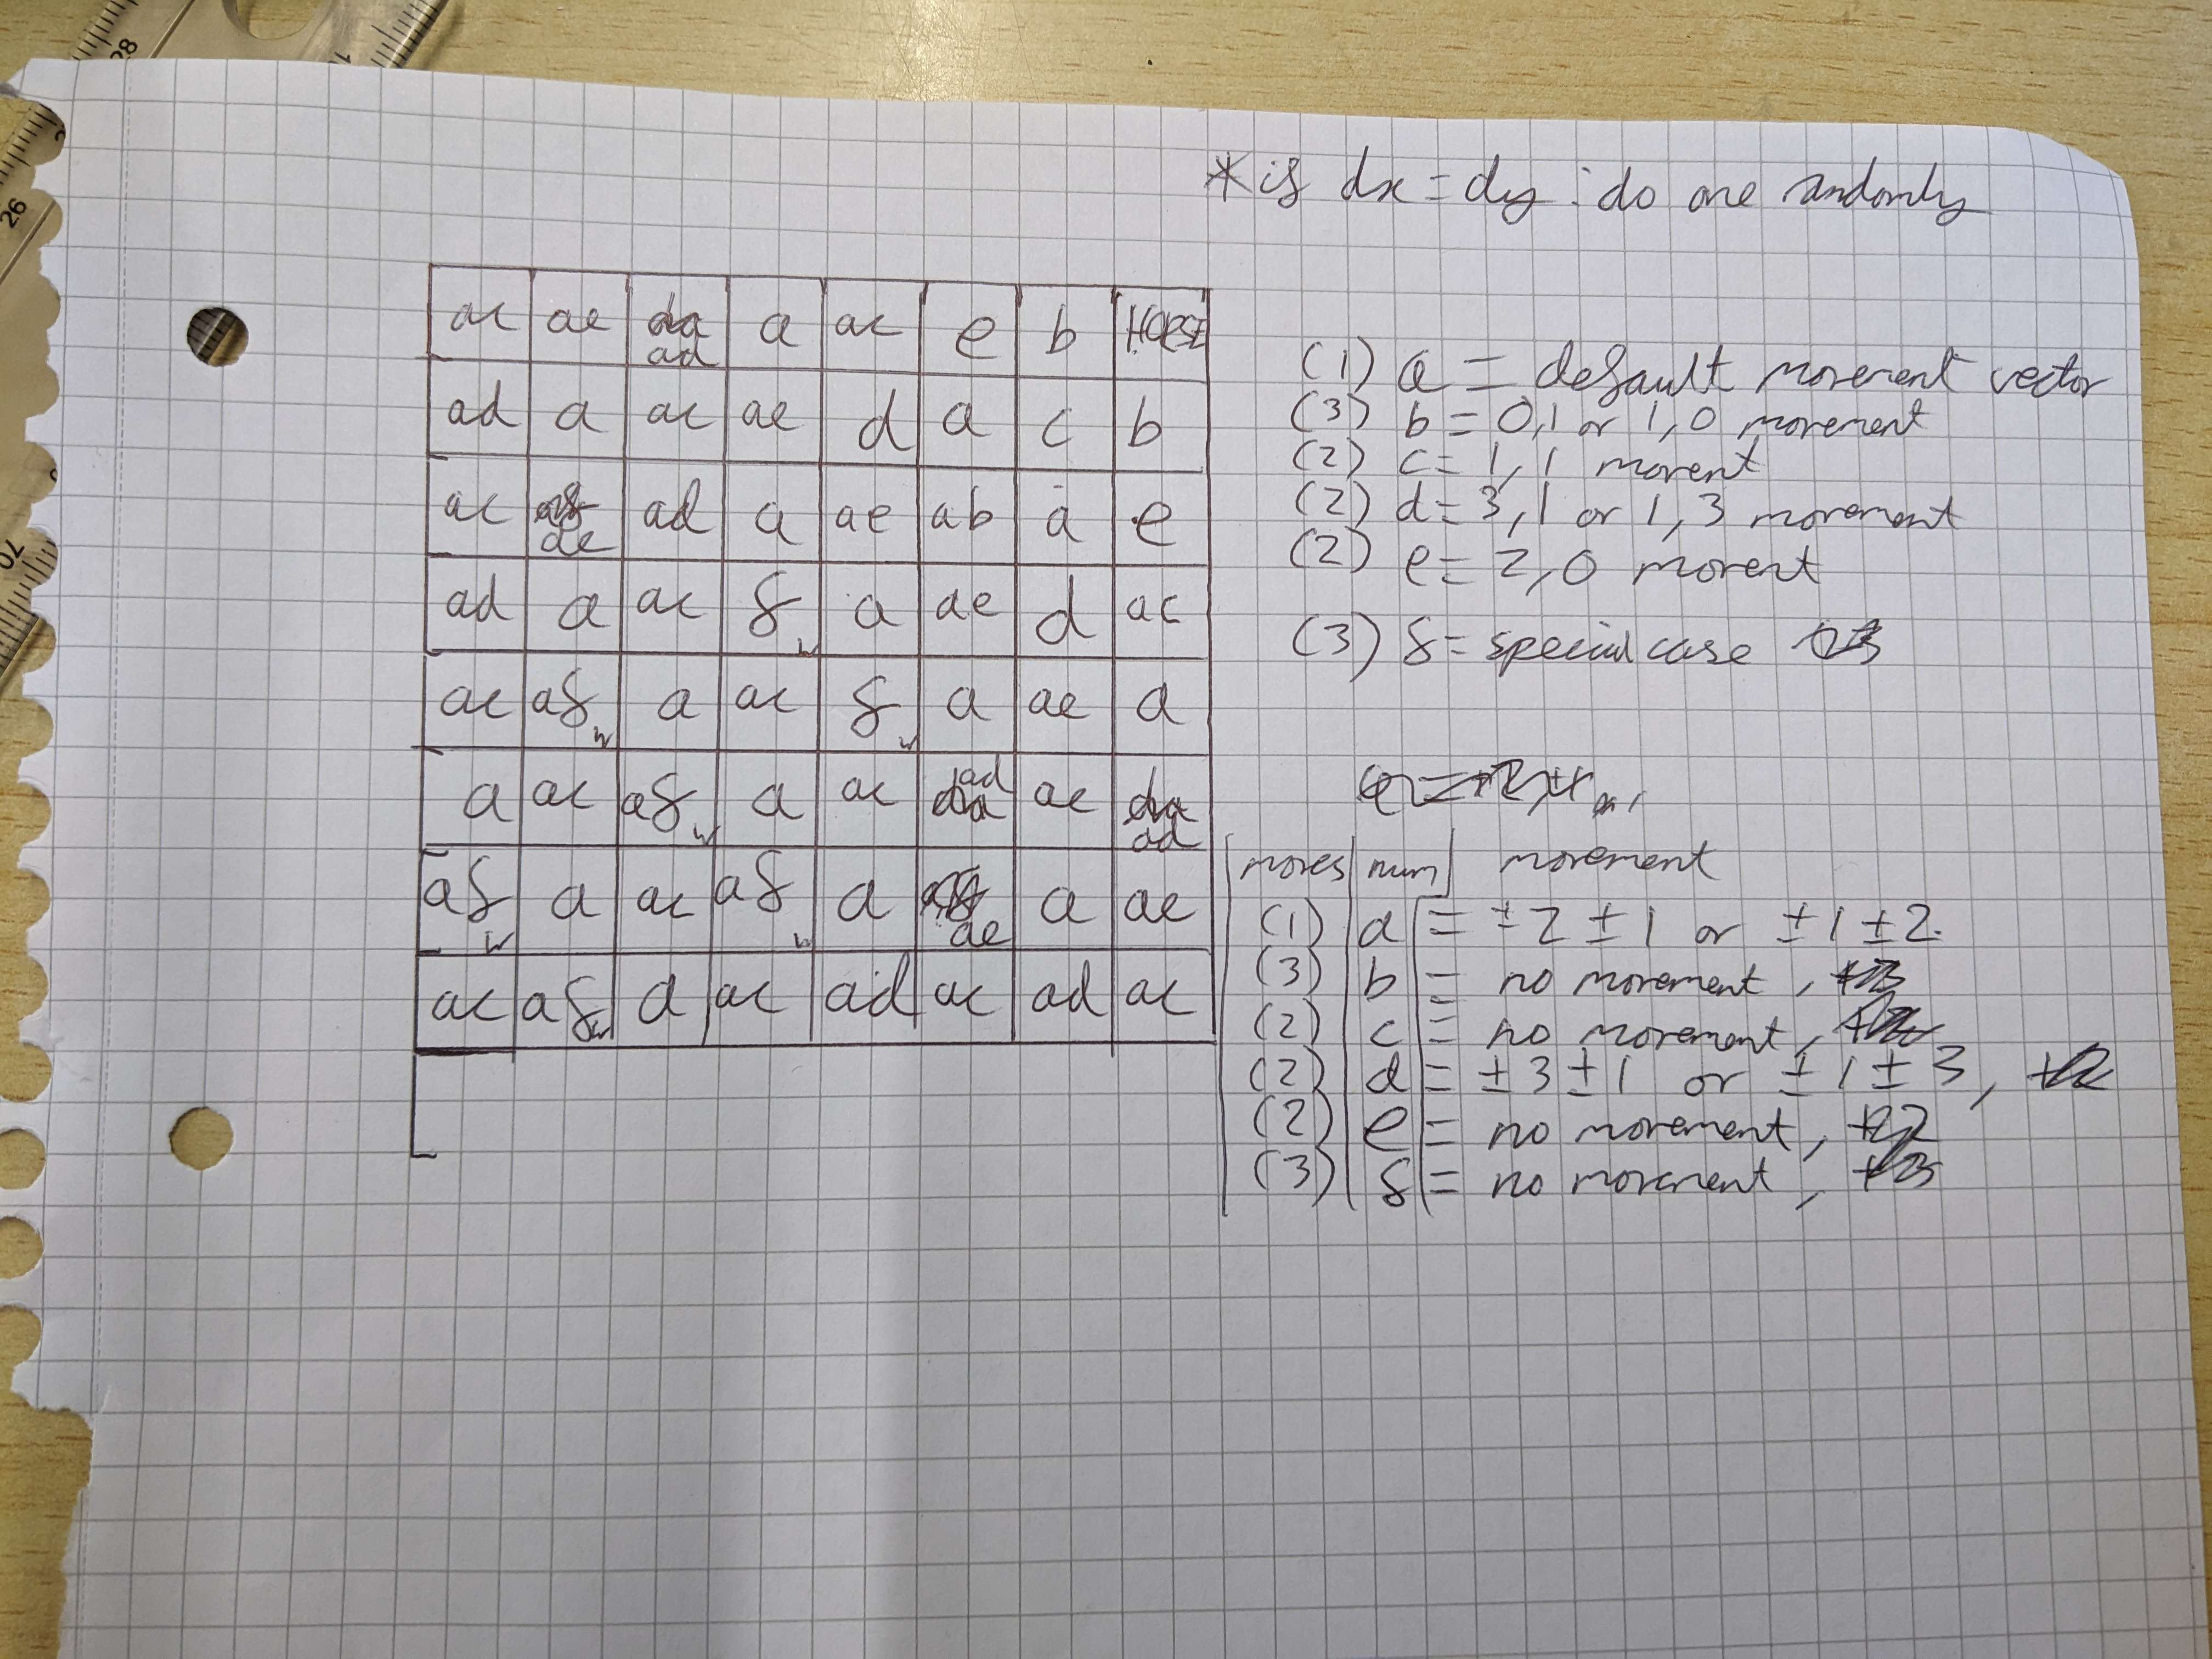 28
26
* if dx = dy : do one randomly
ac ae ad a ac e b HORSE
ad a ac ae d a c b
ac ae ad a ae ab a e
ad a ac f w a ae d ac
ac af w a ac f w a ae a
a ac af w a ac ad ac ad
af w a ac af w a ae a ae
ac af w a ac ad ac ad ac
(1) a = default movement vector
(3) b = 0,1 or 1,0 movement
(2) c = 1,1 movent
(2) d = 3,1 or 1,3 movement
(2) e = 2,0 movent
(3) f = special case
moves num movement
(1) a = ±2 ±1 or ±1 ±2.
(3) b = no movement,
(2) c = no movement,
(2) d = ±3 ±1 or ±1 ±3,
(2) e = no movement,
(3) f = no movement,